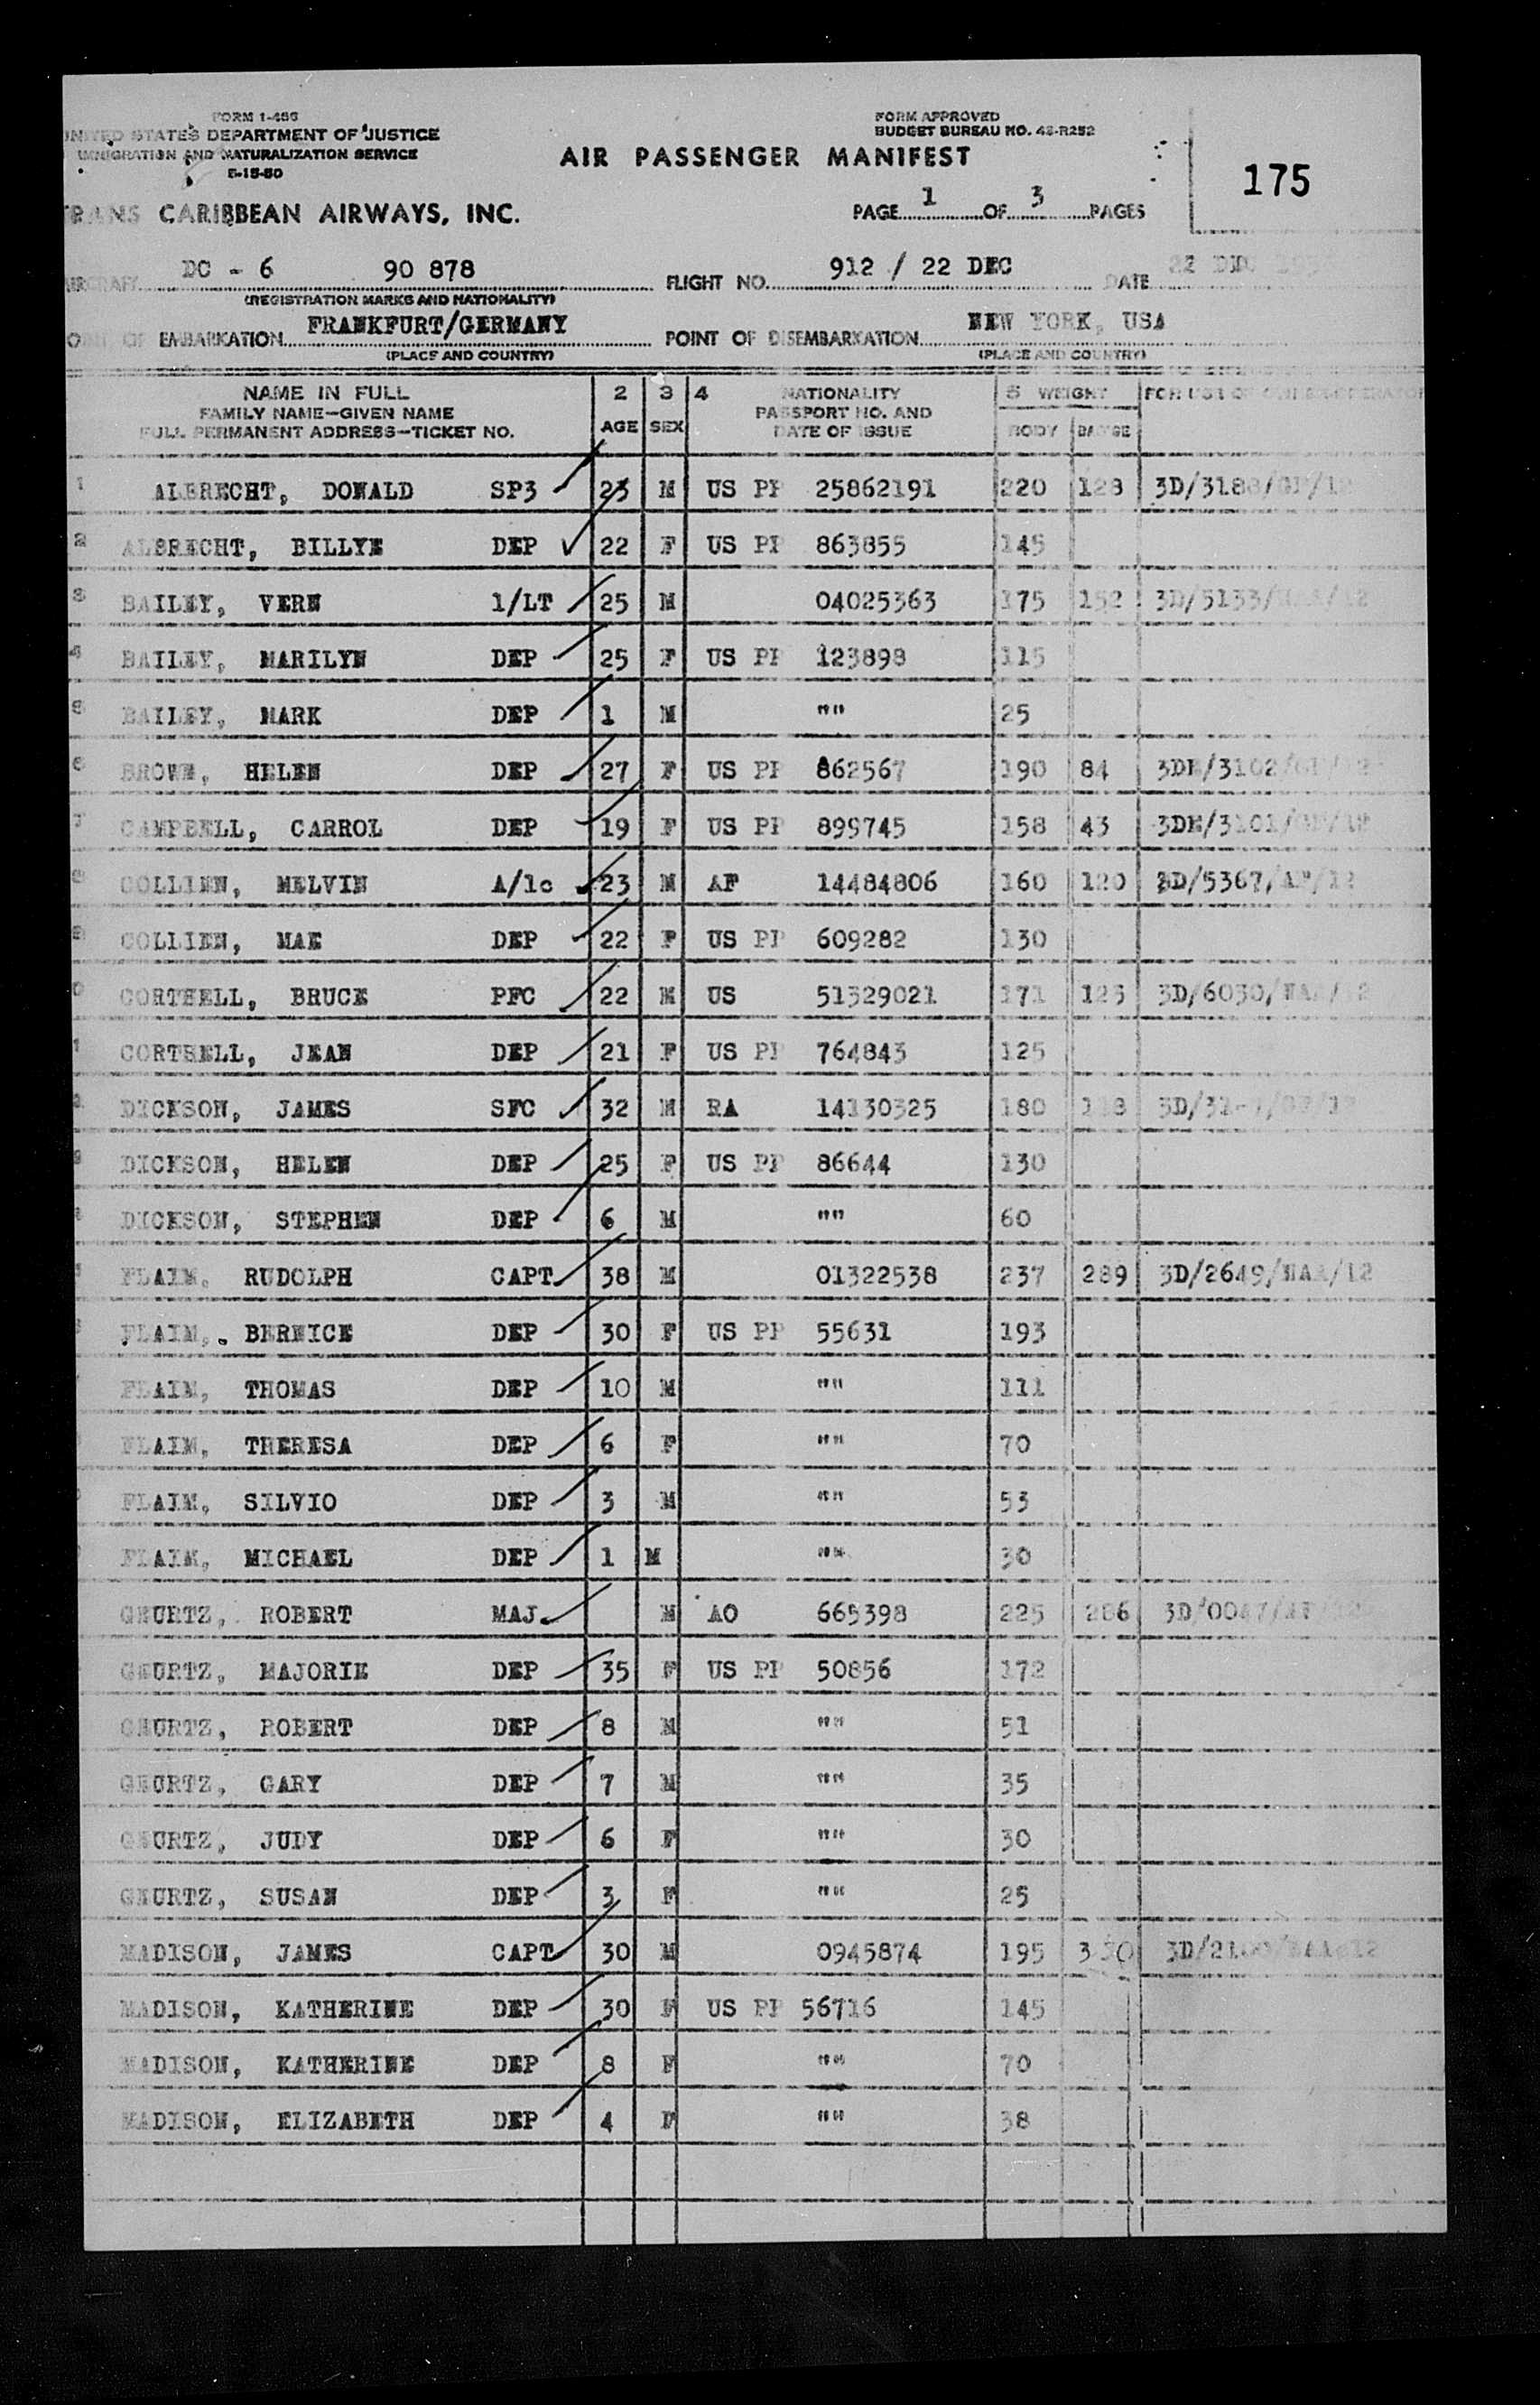 FORM I-466
UNITED STATES DEPARTMENT OF JUSTICE
IMMIGRATION AND NATURALIZATION SERVICE
5-15-50
FORM APPROVED
BUDGET BUREAU NO. 43-R252
AIR PASSENGER MANIFEST
175
TRANS CARIBBEAN AIRWAYS, INC.
PAGE 1 OF 3 PAGES
AIRCRAFT DC - 6 90 878 FLIGHT NO. 912 / 22 DEC DATE 22 DEC
(REGISTRATION MARKS AND NATIONALITY)
POINT OF EMBARKATION FRANKFURT/GERMANY POINT OF DISEMBARKATION NEW YORK, USA
(PLACE AND COUNTRY) (PLACE AND COUNTRY)
NAME IN FULL 2 3 4 NATIONALITY 5 WEIGHT FOR USE OF
FAMILY NAME—GIVEN NAME PASSPORT NO. AND
FULL PERMANENT ADDRESS—TICKET NO. AGE SEX DATE OF ISSUE BODY BAGGE
1 ALBRECHT, DONALD SP3 23 M US PP 25862191 220 128
2 ALBRECHT, BILLYE DEP 22 F US PP 863855 145
3 BAILEY, VERN 1/LT 25 M 04025363 175 152 3D/5133/NAA/12
4 BAILEY, MARILYN DEP 25 F US PP 123898 115
5 BAILEY, MARK DEP 1 M "" 25
6 BROWN, HELEN DEP 27 F US PP 862567 190 84 3DE/3102/GP/12
7 CAMPBELL, CARROL DEP 19 F US PP 899745 158 43 3DE/3101/GP/12
COLLIEN, MELVIN A/1c 23 M AF 14484806 160 120 3D/5367/AF/12
COLLIEN, MAE DEP 22 F US PP 609282 130
CORTHELL, BRUCE PFC 22 M US 51329021 171 125 3D/6030/NAA/12
CORTHELL, JEAN DEP 21 F US PP 764843 125
DICKSON, JAMES SFC 32 M RA 14130325 180
DICKSON, HELEN DEP 25 F US PP 86644 130
DICKSON, STEPHEN DEP 6 M "" 60
FLAIM, RUDOLPH CAPT 38 M 01322538 237 289 3D/2649/NAA/12
FLAIM, BERNICE DEP 30 F US PP 55631 193
FLAIM, THOMAS DEP 10 M "" 111
FLAIM, THERESA DEP 6 F "" 70
FLAIM, SILVIO DEP 3 M "" 53
FLAIM, MICHAEL DEP 1 M "" 30
GEURTZ, ROBERT MAJ. M AO 665398 225 286 3D/0047/AF/12
GEURTZ, MAJORIE DEP 35 F US PP 50856 172
GEURTZ, ROBERT DEP 8 M "" 51
GEURTZ, GARY DEP 7 M "" 35
GEURTZ, JUDY DEP 6 F "" 30
GEURTZ, SUSAN DEP 3 F "" 25
MADISON, JAMES CAPT 30 M 0945874 195
MADISON, KATHERINE DEP 30 F US PP 56716 145
MADISON, KATHERINE DEP 8 F "" 70
MADISON, ELIZABETH DEP 4 F "" 38